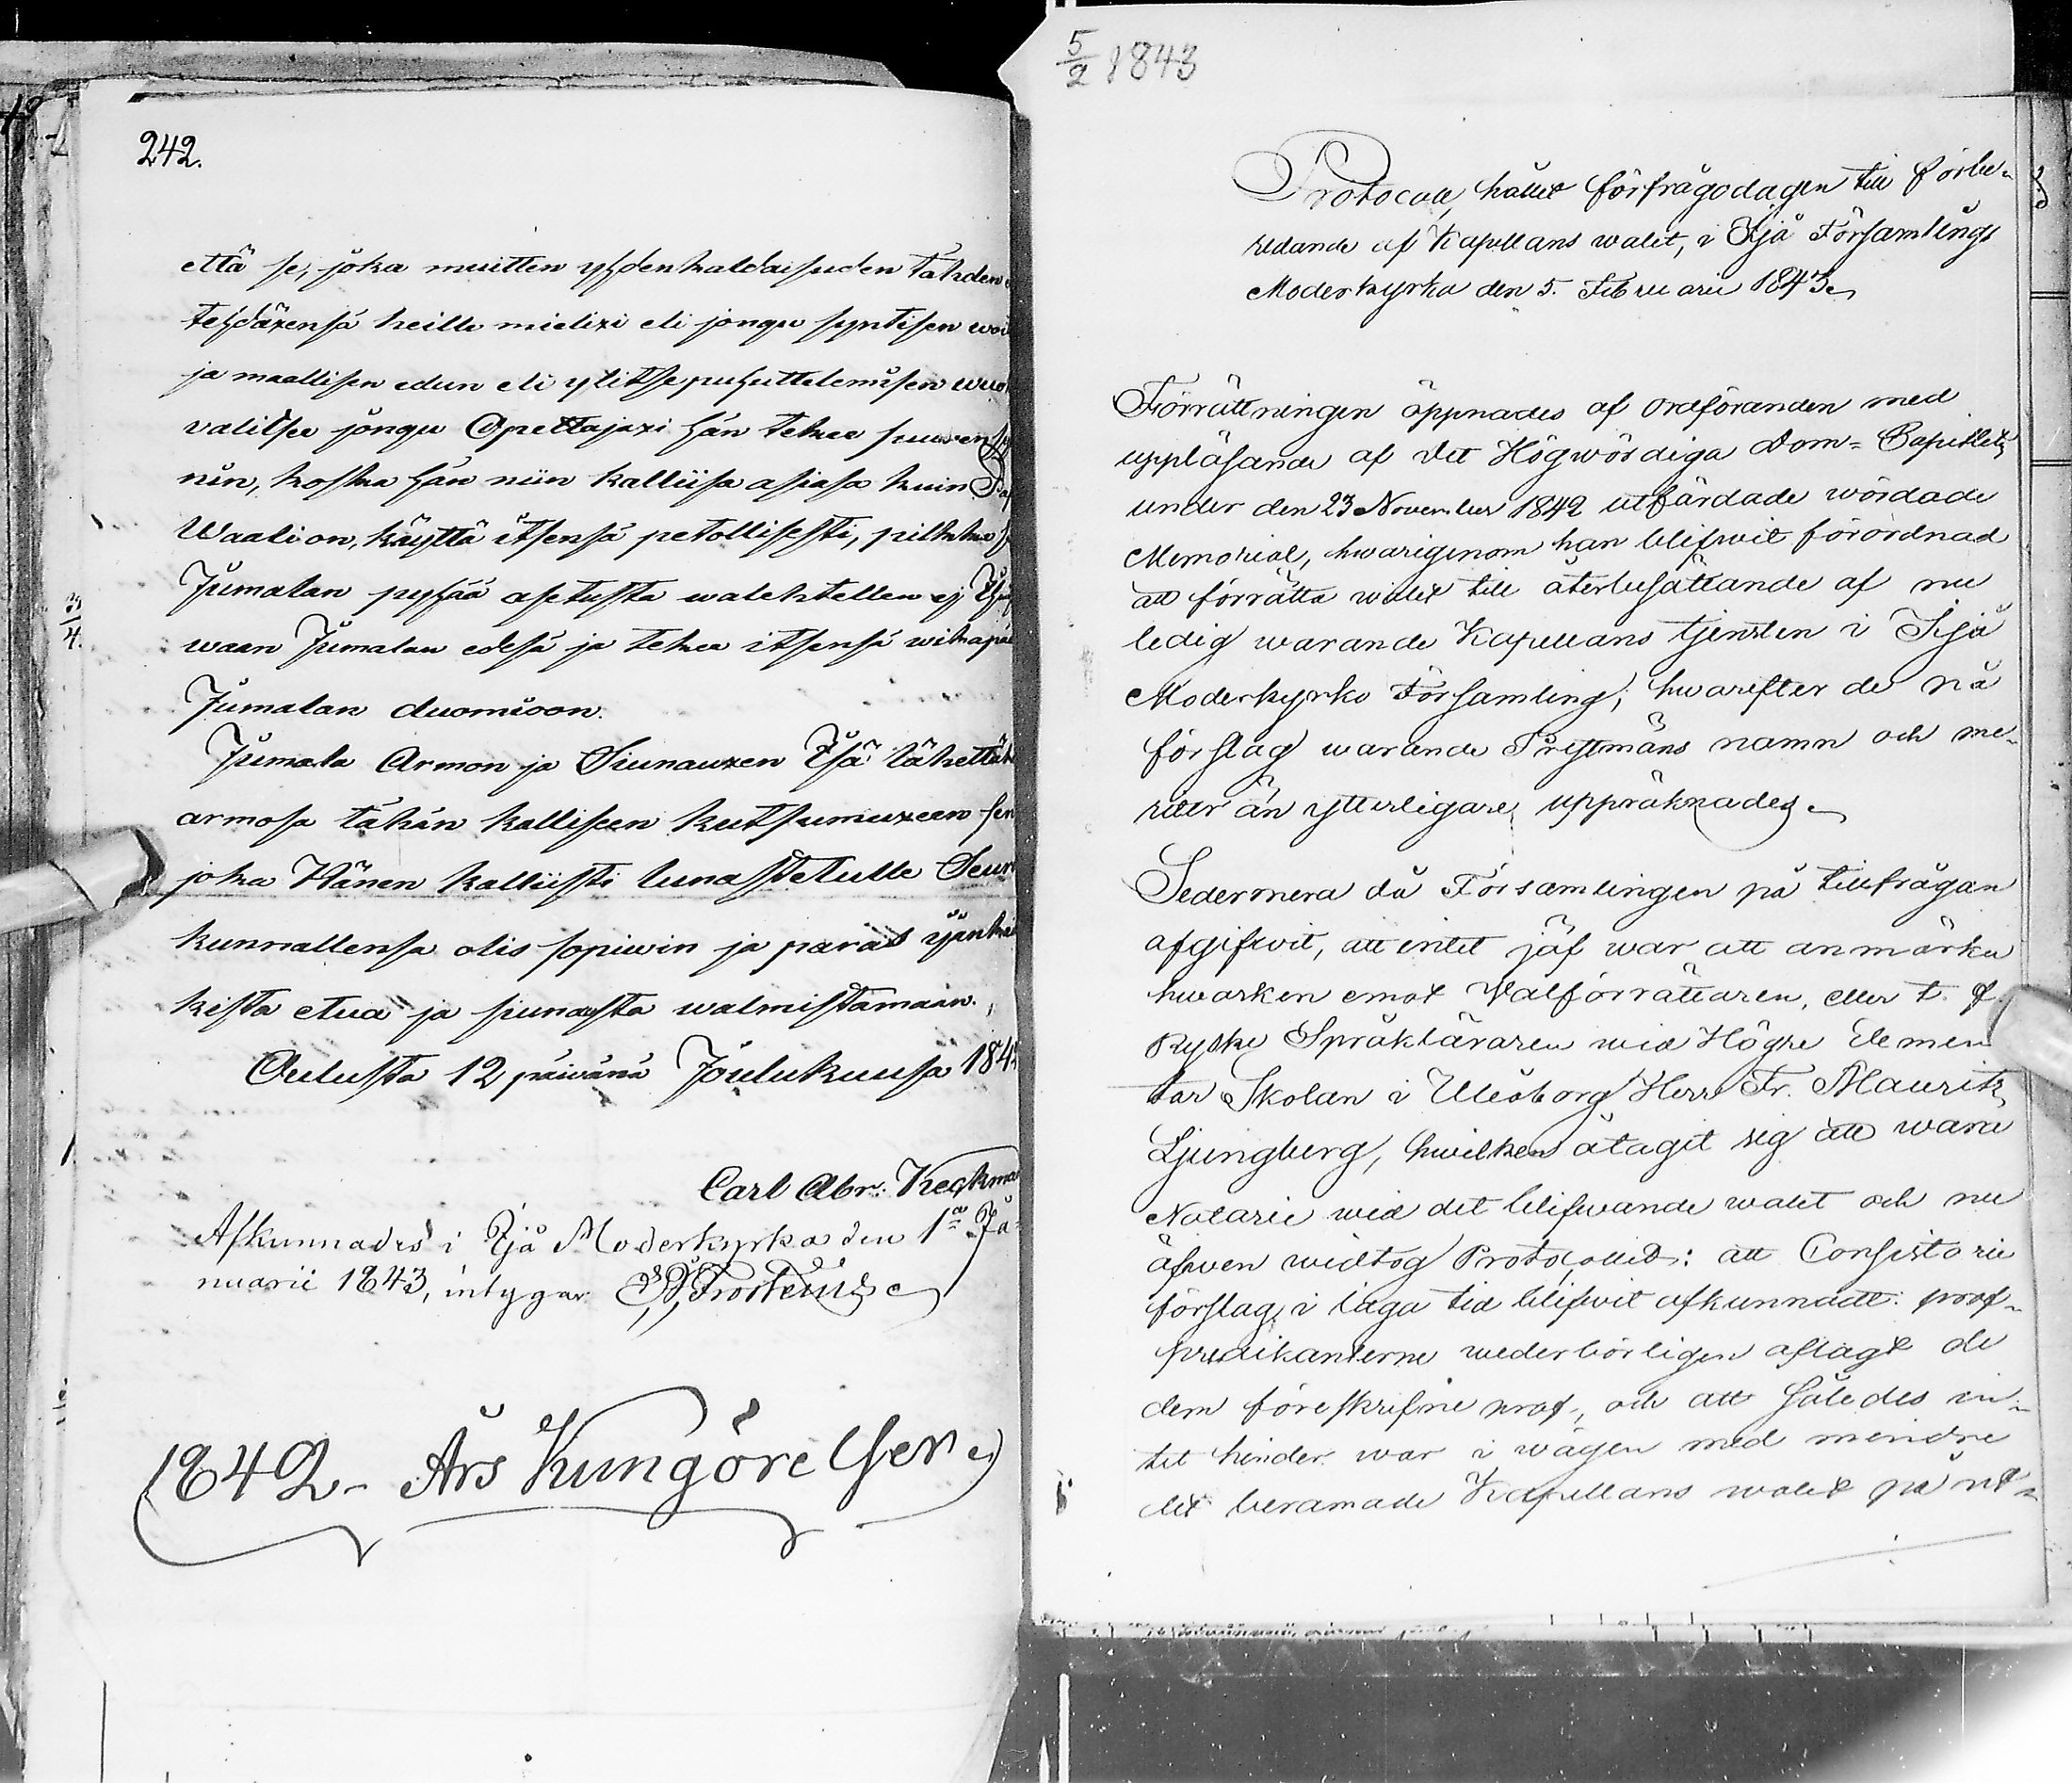 242.
että se, joka muitten yhdenkaldaisuden tähden
tehdäxensä heille mielixi eli jongu syntisen
ja maallisen edun eli ylitse puhuttelemisen
valitsee jongu Opettajaxi hän tekee suuren
nin, koska hän niin kalliisa asiasa kuin
Waali on, käyttä itsensä petollisesti, pilkkaa
Jumalan pyhää asetusta walehtellen ej
waan Jumalan edesä ja tekee itsensä
Jumalan duomioon.
Jumala Armon ja Siunauxen Isä lähettäk
armosa tähän kalliseen kutsumuxeen sen
joka Hänen kalliisti lunastetulle Seur
kunnallensa olis sopiwin ja paras ijan
kista etua ja siunausta walmistamaan.
Oulusta 12 päivänä Joulukuusa 184
Carl Abr. Keckma
Afkunnades i Ijå Moderkyrka den 1ª Ja-
nuarii 1843, intygar Frosterus
1842 - Års Kungörelser
5/2 1843
Protocoll, hållet förfrågodagen till förbe-
redande af Kapellans walet, i Ijå Församlings
Moderkyrka den 5. Februarii 1843
Förrättningen öppnades af ordföranden med
uppläsande af det Högwördiga Dom-Capitlets
under den 23 November 1842 utfärdade wördade
Memorial, hwarigenom han blifwit förordnad
att förrätta walet till återbesättande af nu
ledig warande Kapellans tjensten i Ijå
Moderkyrko Församling; hwarefter de på
förslag warande Prestmäns namn och me-
riter än ytterligare uppräknades.
Sedermera då Församlingen på tillfrågan
afgifwit, att intet jäf war att anmärka
hwarken emot Valförrättaren, eller t. f.
Ryske Språkläraren wid Högre Elemen
tar Skolan i Uleåborg Herr Fr. Mauritz
Ljungberg, hwilken åtagit sig att wara
Notarie wid det blifwande walet och nu
äfwen widtog Protocollet: att Consistorii
förslag i laga tid blifwit afkunnadt: prof-
predikanterne wederbörligen aflagt de
dem föreskrifne prof, och att således in-
tet hinder war i wägen med mindre
det beramade Kapellans walet på